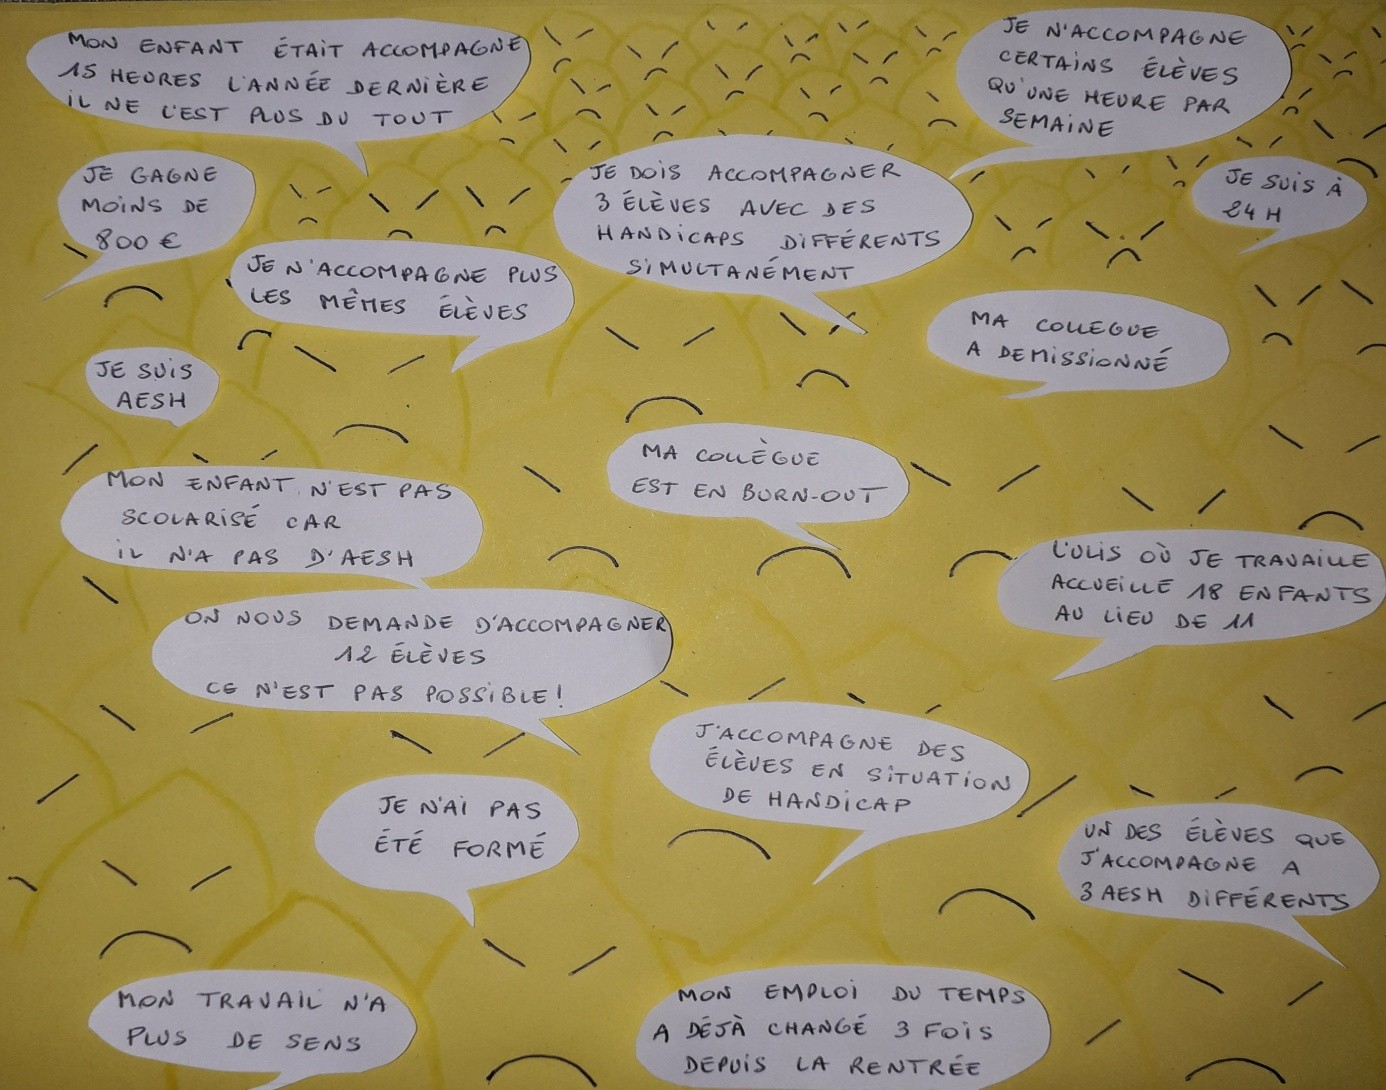 MON ENFANT ÉTAIT ACCOMPAGNÉ
15 HEURES L'ANNÉE DERNIÈRE
IL NE L'EST PLUS DU TOUT
JE N'ACCOMPAGNE
CERTAINS ÉLÈVES
QU'UNE HEURE PAR
SEMAINE
JE GAGNE
MOINS DE
800 €
JE DOIS ACCOMPAGNER
3 ÉLÈVES AVEC DES
HANDICAPS DIFFÉRENTS
SIMULTANÉMENT
JE SUIS À
24 H
JE N'ACCOMPAGNE PLUS
LES MÊMES ÉLÈVES
MA COLLEGUE
A DEMISSIONNÉ
JE SUIS
AESH
MA COLLÈGUE
EST EN BURN-OUT
MON ENFANT N'EST PAS
SCOLARISÉ CAR
IL N'A PAS D'AESH
L'ULIS OÙ JE TRAVAILLE
ACCUEILLE 18 ENFANTS
AU LIEU DE 11
ON NOUS DEMANDE D'ACCOMPAGNER
12 ÉLÈVES
CE N'EST PAS POSSIBLE!
J'ACCOMPAGNE DES
ÉLÈVES EN SITUATION
DE HANDICAP
JE N'AI PAS
ÉTÉ FORMÉ
UN DES ÉLÈVES QUE
J'ACCOMPAGNE A
3 AESH DIFFÉRENTS
MON TRAVAIL N'A
PLUS DE SENS
MON EMPLOI DU TEMPS
A DÉJÀ CHANGÉ 3 FOIS
DEPUIS LA RENTRÉE